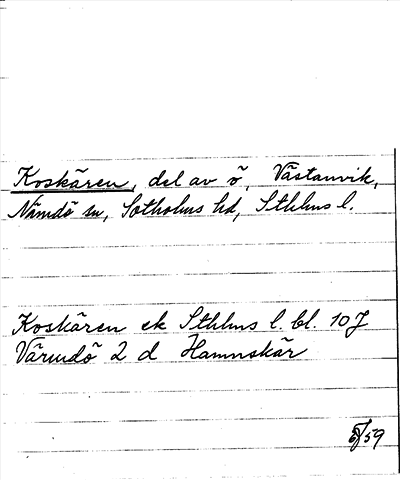 Koskären, del av ö, Västanvik,
Nämdö sn, Sotholms hd, Sthlms l.
Koskären ek Sthlms l. bl. 10 J
Värmdö 2 d Hamnskär
59